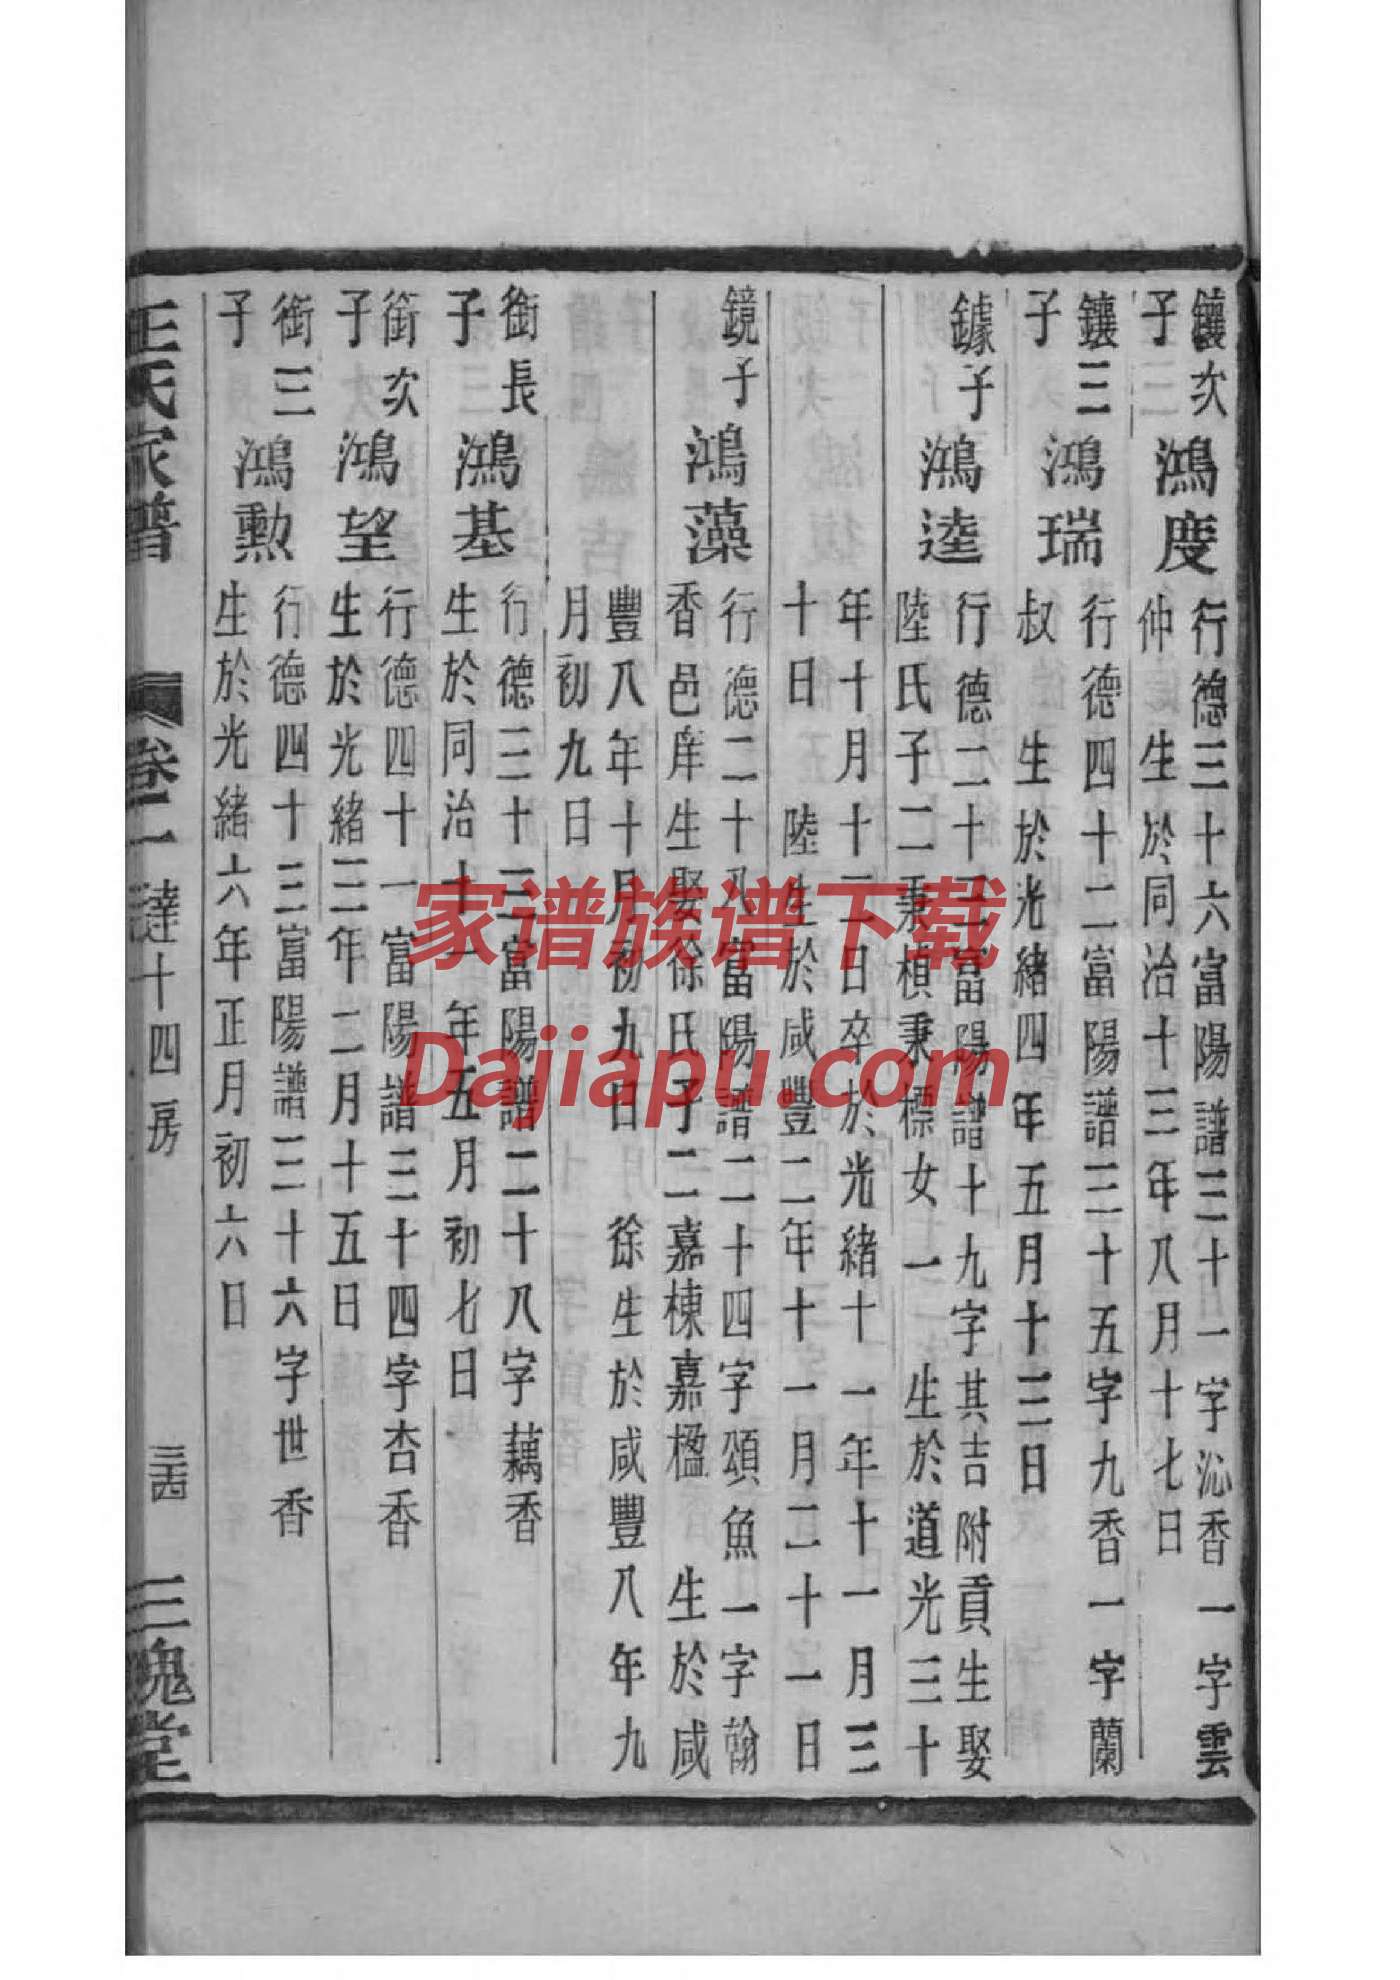 鑲次
子
鴻度
行德三十六富陽譜三十一字沁香一字雲
仲 生於同治十三年八月十七日
鑲三
子
鴻瑞
行德四十二富陽譜三十五字九香一字蘭
叔 生於光緒四年五月十三日
鐻子
鴻逵
行德二十 富陽譜十九字其吉附貢生娶
陸氏子二秉楨秉標女一 生於道光三十
年十月十二日卒於光緒十一年十一月三
十日 陸生於咸豐二年十一月二十一日
鏡子
鴻藻
行德二十八富陽譜二十四字頌魚一字翰
香邑庠生娶徐氏子二嘉棟嘉楹 生於咸
豐八年十月初九日 徐生於咸豐八年九
月初九日
銜長
子
鴻基
行德三十三富陽譜二十八字藕香
生於同治十一年五月初七日
銜次
子
鴻望
行德四十一富陽譜三十四字杏香
生於光緒三年二月十五日
銜三
子
鴻勳
行德四十三富陽譜三十六字世香
生於光緒六年正月初六日
王氏家譜 卷二 達十四房 三十四 三槐堂
家谱族谱下载
Dajiapu.com